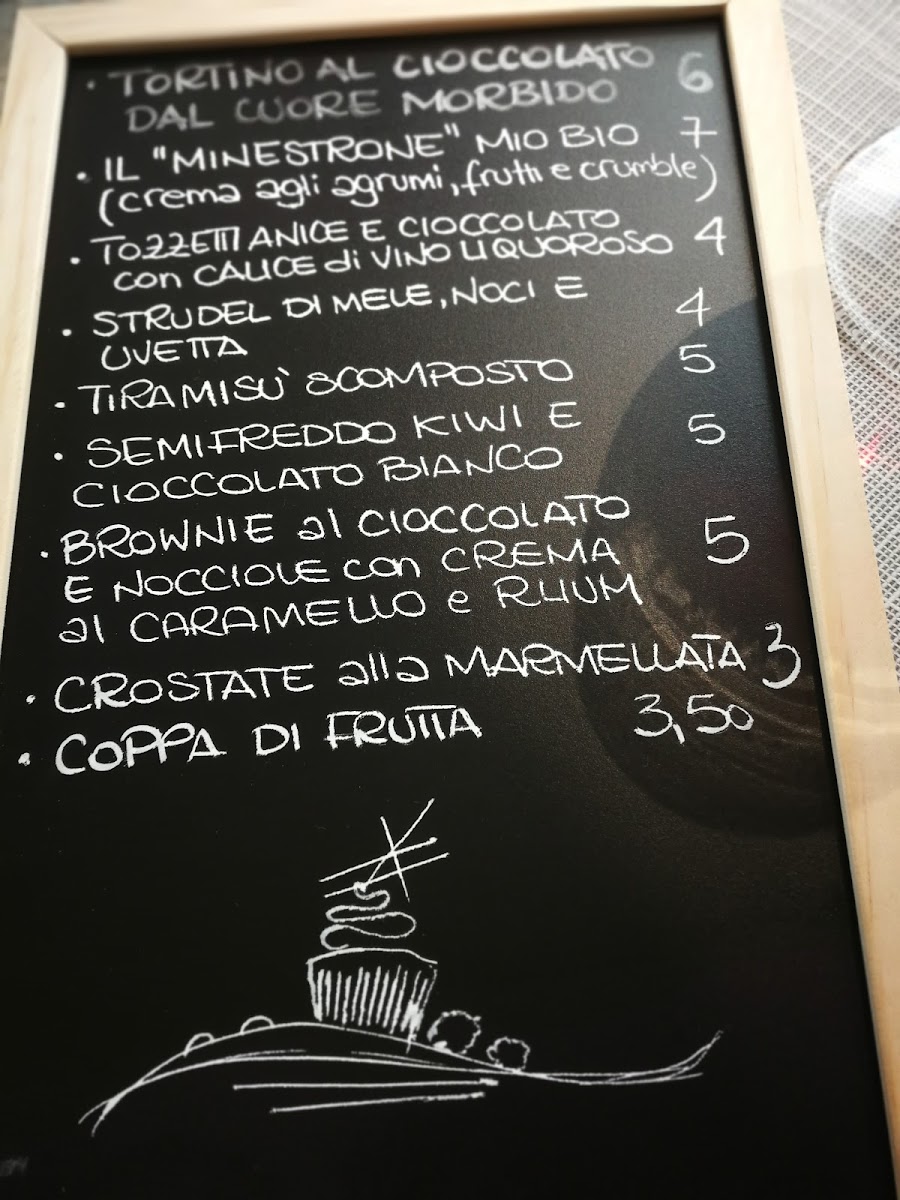 • TORTINO AL CIOCCOLATO 6
DAL CUORE MORBIDO
• IL "MINESTRONE" MIO BIO 7
(crema agli agrumi, frutti e crumble)
• TOZZETTI ANICE E CIOCCOLATO 4
con CALICE di VINO LIQUOROSO
• STRUDEL DI MELE, NOCI E 4
UVETTA
• TIRAMISÙ SCOMPOSTO 5
• SEMIFREDDO KIWI E 5
CIOCCOLATO BIANCO
• BROWNIE al CIOCCOLATO 5
E NOCCIOLE con CREMA
al CARAMELLO e RHUM
• CROSTATE alla MARMELLATA 3
• COPPA DI FRUTTA 3,50